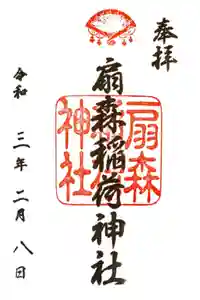 奉拝
扇森稲荷神社
令和三年二月八日
扇森
神社